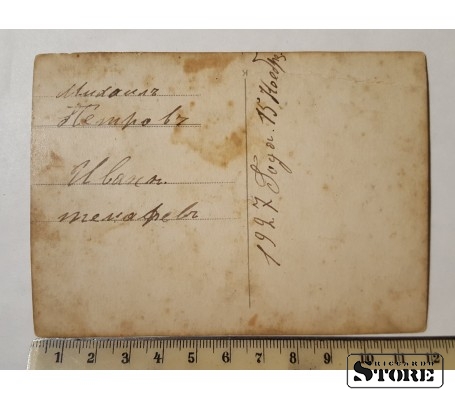 Михаилъ
Петровъ
Иванъ
1927 Года. 15 Нояб
1 2 3 4 5 6 7 8 9 10 11 12
RICCARDO
STORE